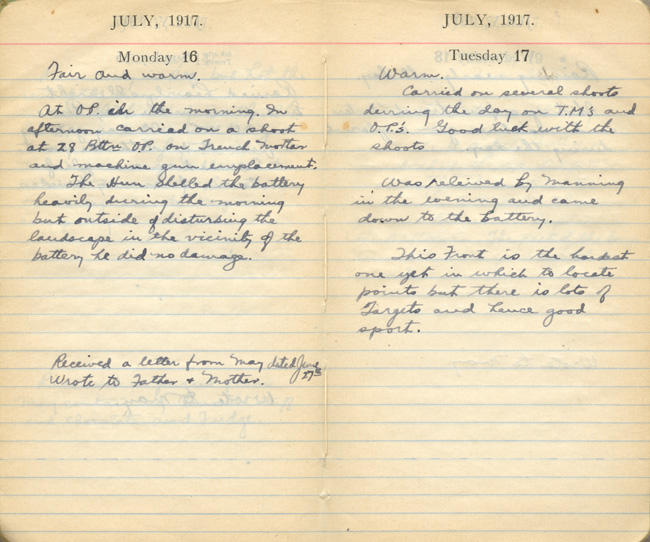 JULY, 1917.
Monday 16
Fair and warm.
At O.P. in the morning. In
afternoon carried on a shoot
at 28 Battn O.P. on Trench Mortar
and machine gun emplacement.
The Hun shelled the battery
heavily during the morning
but outside of disturbing the
landscape in the vicinity of the
battery he did no damage.
Received a letter from May dated June
27th
Wrote to Father & Mother.
JULY, 1917.
Tuesday 17
Warm.
Carried on several shoots
during the day on T.M's and
O.P.'s. Good luck with the
shoots
Was releived by Manning
in the evening and came
down to the battery.
This Front is the hardest
one yet in which to locate
points but there is lots of
Targets and hence good
sport.